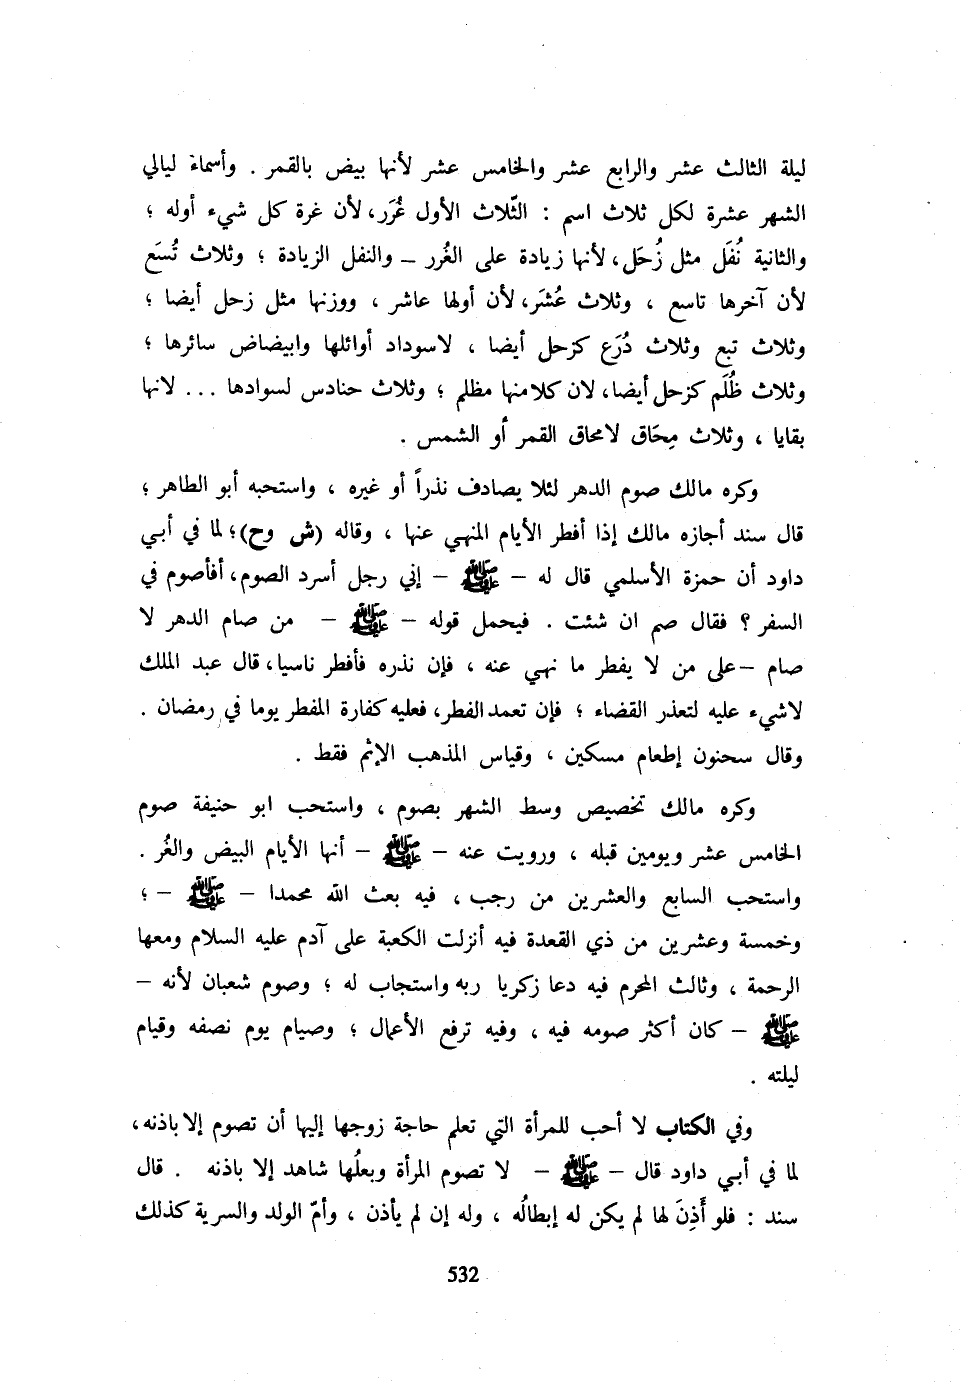 ليلة الثالث عشر والرابع عشر والخامس عشر لأنها بيض بالقمر . وأسماء ليالي
الشهر عشرة لكل ثلاث اسم : الثّلاث الأول غُرَر، لأن غرة كل شيء أوله ؛
والثانية نُفَل مثل زُحَل، لأنها زيادة على الغُرر – والنفل الزيادة ؛ وثلاث تُسَع
لأن آخرها تاسع ، وثلاث عُشَر، لأن أولها عاشر ، ووزنها مثل زحل أيضا ؛
وثلاث تبع وثلاث دُرَع كزحل أيضا ، لاسوداد أوائلها وابيضاض سائرها ؛
وثلاث ظُلَم كزحل أيضا، لان كلامنها مظلم ؛ وثلاث حنادس لسوادها ... لانها
بقايا ، وثلاث مِحَاق لامحاق القمر أو الشمس .
وكره مالك صوم الدهر لئلا يصادف نذراً أو غيره ، واستحبه أبو الطاهر ؛
قال سند أجازه مالك إذا أفطر الأيام المنهي عنها ، وقاله (ش وح)؛ لما في أبي
داود أن حمزة الأسلمي قال له – ﷺ – إني رجل أسرد الصوم، أفأصوم في
السفر ؟ فقال صم ان شئت . فيحمل قوله – ﷺ – من صام الدهر لا
صام –على من لا يفطر ما نهي عنه ، فإن نذره فأفطر ناسيا، قال عبد الملك
لاشيء عليه لتعذر القضاء ؛ فإن تعمد الفطر، فعليه كفارة المفطر يوما في رمضان .
وقال سحنون إطعام مسكين ، وقياس المذهب الإثم فقط .
وكره مالك تخصيص وسط الشهر بصوم ، واستحب ابو حنيفة صوم
الخامس عشر ويومين قبله ، ورويت عنه – ﷺ – أنها الأيام البيض والغُر .
واستحب السابع والعشرين من رجب ، فيه بعث الله محمدا – ﷺ – ؛
وخمسة وعشرين من ذي القعدة فيه أنزلت الكعبة على آدم عليه السلام ومعها
الرحمة ، وثالث المحرم فيه دعا زكريا ربه واستجاب له ؛ وصوم شعبان لأنه –
ﷺ – كان أكثر صومه فيه ، وفيه ترفع الأعمال ؛ وصيام يوم نصفه وقيام
ليلته .
وفي الكتاب لا أحب للمرأة التي تعلم حاجة زوجها إليها أن تصوم إلا باذنه،
لما في أبي داود قال – ﷺ – لا تصوم المرأة وبعلُها شاهد إلا باذنه . قال
سند : فلو أَذِنَ لها لم يكن له إبطالُه ، وله إن لم يأذن ، وأمّ الولد والسرية كذلك
532